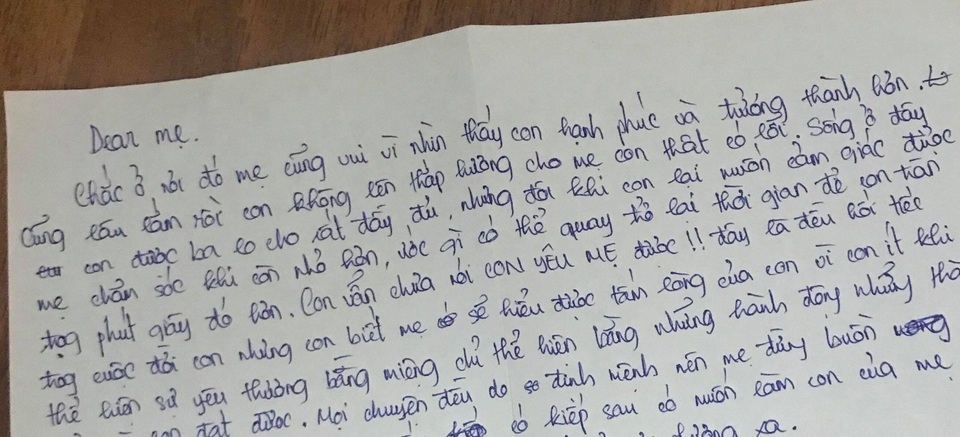 Dear mẹ.
Chắc ở nơi đó mẹ cũng vui vì nhìn thấy con hạnh phúc và trưởng thành hơn.
Cũng lâu lắm rồi con không lên thắp hương cho mẹ con thật có lỗi. Sống ở đây
con được ba lo cho rất đầy đủ, nhưng đôi khi con lại muốn cảm giác được
mẹ chăm sóc khi còn nhỏ hơn, ước gì có thể quay trở lại thời gian để con trân
trọng phút giây đó hơn. Con vẫn chưa nói CON YÊU MẸ được!! đây là điều hối tiếc
trog cuộc đời con nhưng con biết mẹ sẽ hiểu được tấm lòng của con vì con ít khi
thể hiện sự yêu thương bằng miệng chỉ thể hiện bằng những hành động những
con đạt được. Mọi chuyện đều do định mệnh nên mẹ đừng buồn
có kiếp sau có muốn làm con của mẹ
xa.